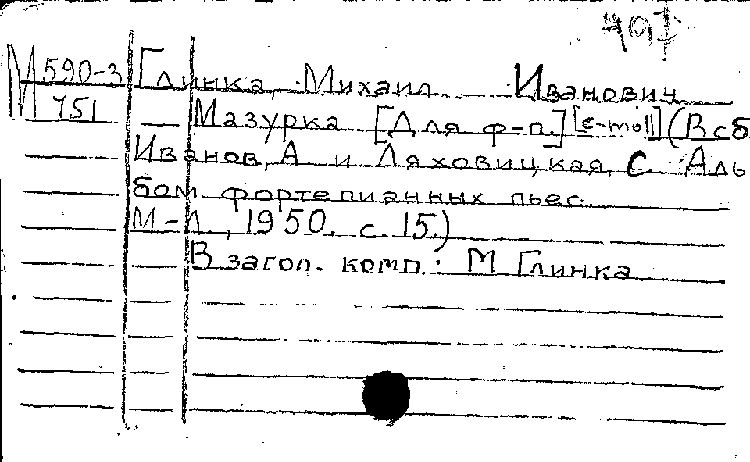 М 590-3 Глинка, Михаил Иванович
М 751 Мазурка [Для ф-п.] [e-moll] (В сб
Иванов, А и Ляховицкая, С. Аль
бом фортепианных пьес
М-Л, 1950. с. 15.)
В загол. комп.: М Глинка